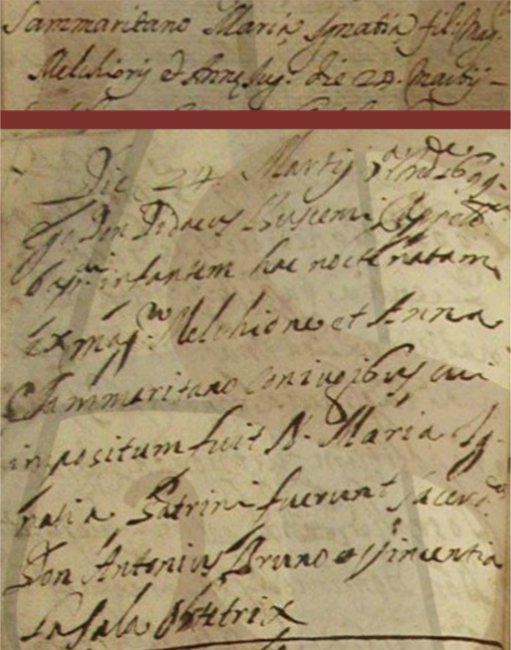 Sammaritano Maria Ignatia fil:
Melchioris et Annę Iug: die 24. Martij
Die 24 Martij
Ego Don Didacus Buscemi
infantem hac nocte natam
ex mag: Melchione et Anna
Sammaritano coniugibus cui
impositum fuit N. Maria Ig-
natia Patrini fuerunt Sacerd:
Don Antonius Bruno et Vincentia
La Sala obstetrix